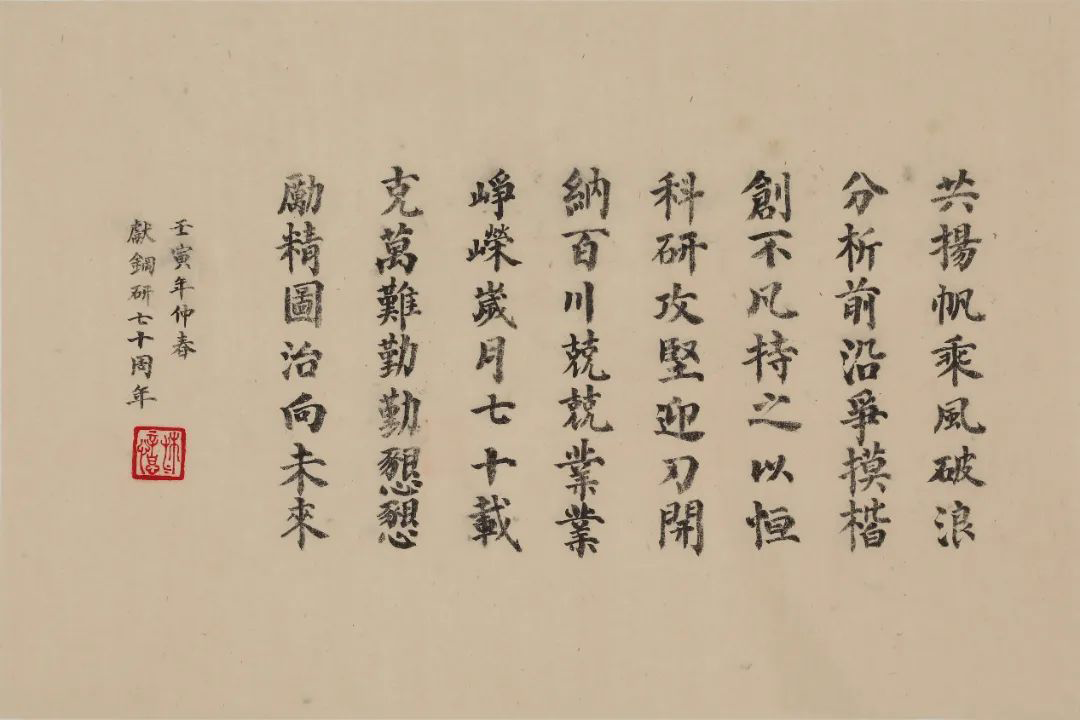 共揚帆乘風破浪
分析前沿爭摸楷
創不凡持之以恒
科研攻堅迎刃開
納百川兢兢業業
崢嶸歲月七十載
克萬難勤勤懇懇
勵精圖治向未來
壬寅年仲春
獻鋼研七十周年